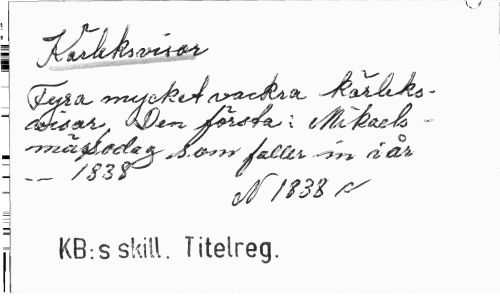 Kärleksvisor
Fyra mycket vackra kärleks-
visor. Den första: Mikaels-
mässodag som faller in i år
-- 1838
N 1838 N
KB:s skill. Titelreg.